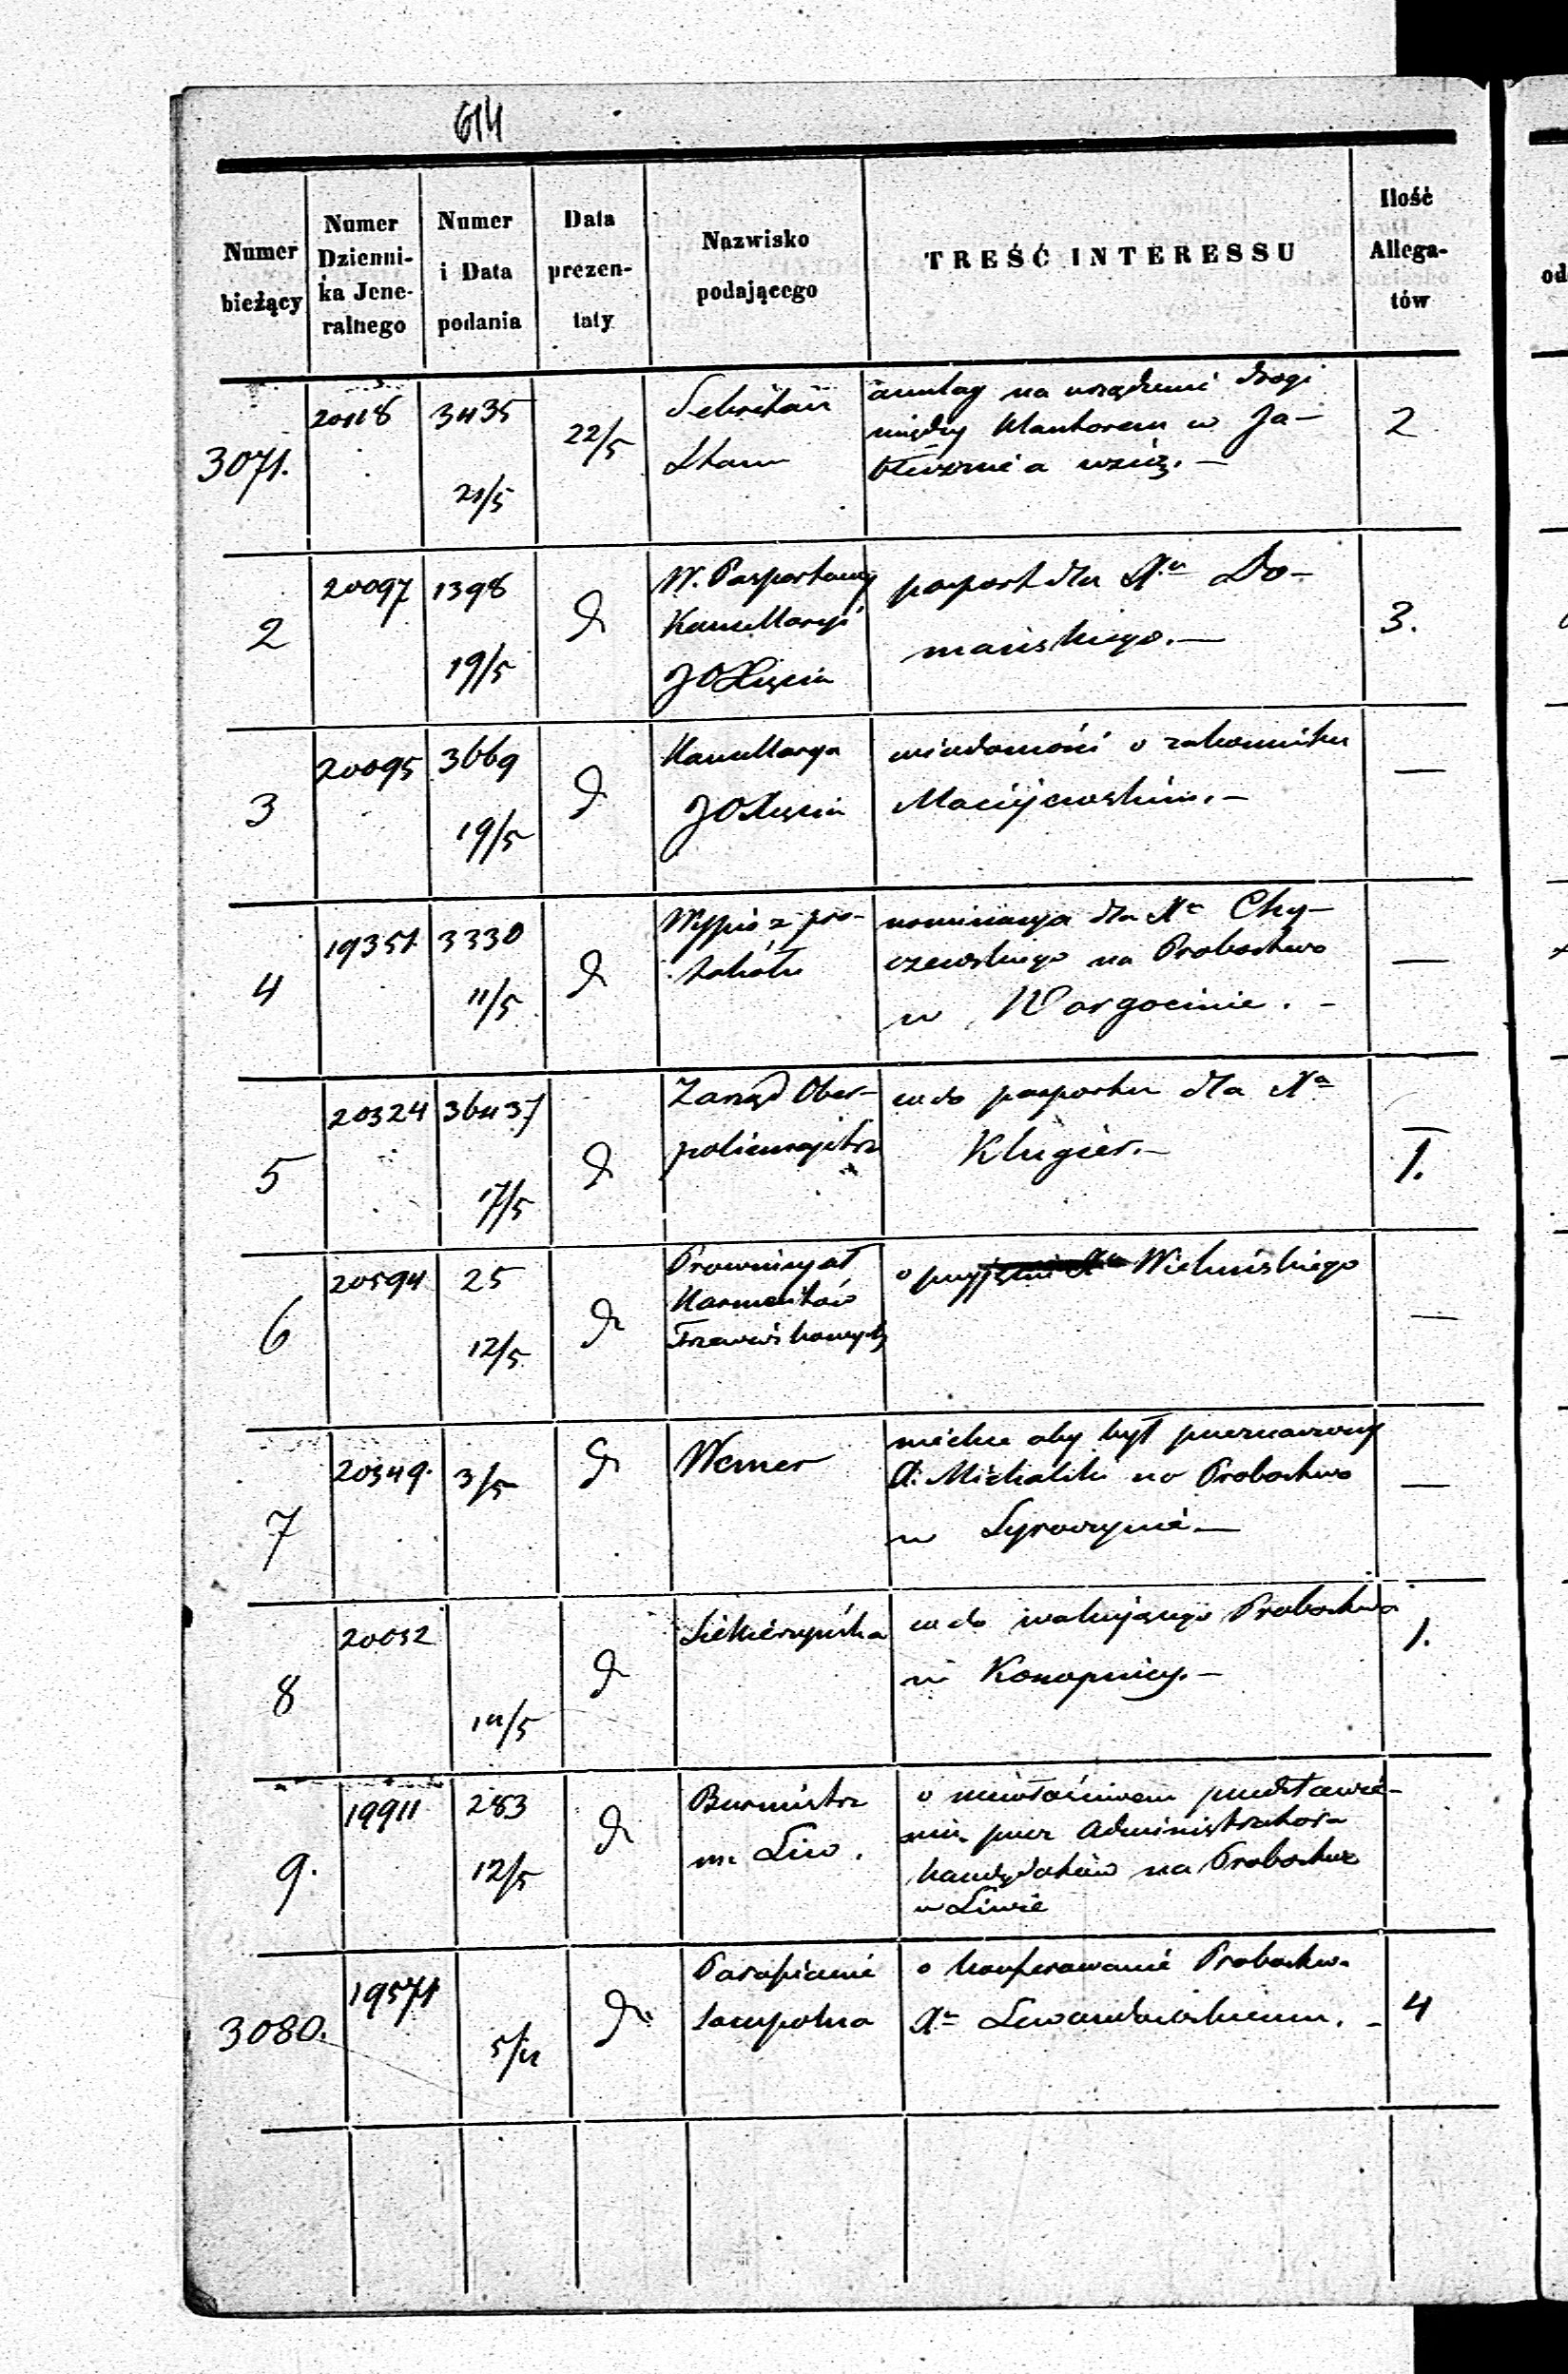 614
Numer bieżący
Numer Dzienni-ka Jene-ralnego
Numer i Data podania
Data prezen-taty
Nazwisko podającego
TREŚĆ INTERESSU
Ilość Allega-tów
3071.
3435
21/5
22/5
na urządzenie drogi
między Klasztorem w Ja-
2
2
20097
1398
19/5
W. Pasportowy
Kancellaryi
JOXięcia
pasport dla Xa Do-
mańskiego.—
3.
3
20095
3669
19/5
Kancellarya
JOXięcia
wiadomość o zakonniku
Maciejewskim.—
—
4
19351
3330
11/5
Wypis z pro-
tokółu
nominacya dla Xa Chy-
czewskiego na Probostwo
w Wargocinie. -
—
5
20324
36437
17/5
Zarząd Ober-
policmajstra
co do pasportu dla Xa
Klugier.—
1.
6
20594
25
12/5
Prowincyał
Karmelitów
Trzewiczkowych
o przyjęcie Xa Wieluńskiego
—
7
20349.
3/5
Werner
niechce aby był przeznaczony
X. Michalski na Probostwo
w
—
8
20032
14/5
Siekierzyńska
co do wakującego Probostwa
w Konopnicy.—
1.
9.
19911
283
12/5
Burmistrz
m. Liw.
o niewłaściwem przedstawie-
niu przez Administratora
kandydatów na Probostwo
w Liwie
3080.
19571
5/4
Parafianie
Sampolna
o konferowanie Probostwa
Xa Lewandowskiemu. -
4